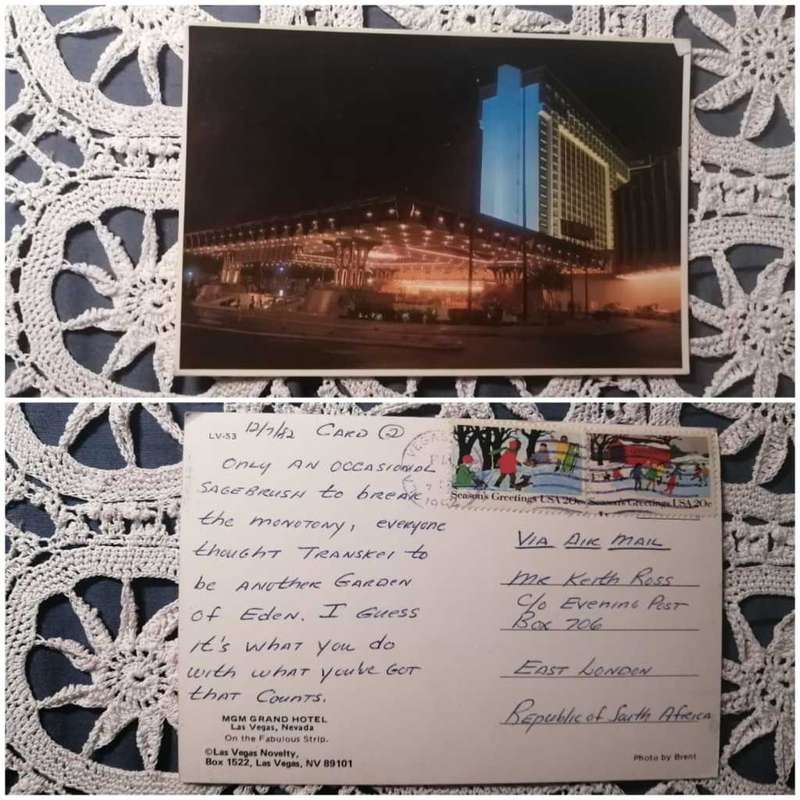 LV-53 12/7/82 CARD ②
ONLY AN OCCASIONAL
SAGEBRUSH to BREAK
the MONOTONY, EVERYONE
thought TRANSKEI to
be ANOTHER GARDEN
OF EDEN. I GUESS
it's WHAT YOU do
WITH WHAT YOU'VE GOT
that COUNTS.
MGM GRAND HOTEL
Las Vegas, Nevada
On the Fabulous Strip.
©Las Vegas Novelty,
Box 1522, Las Vegas, NV 89101
VEGAS
Season's Greetings USA 20c
Season's Greetings USA 20c
VIA AIR MAIL
MR KEITH ROSS
C/O EVENING POST
BOX 706
EAST LONDON
Republic of South AFRICA
Photo by Brent